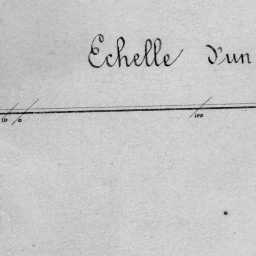 Echelle d'un
10 0 100